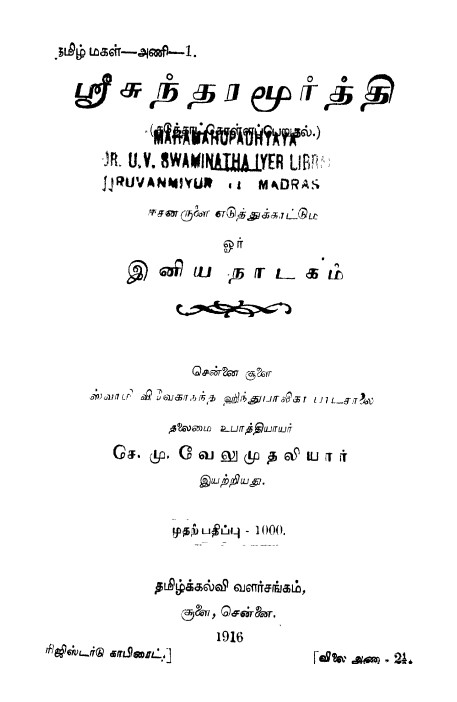 தமிழ் மகள்—அணி—1.
ஸ்ரீ சுந்தரமூர்த்தி
(தடுத்தாட்கொள்ளப்பெறுதல்.)
MAHAMAHOPADHYAYA
DR. U.V. SWAMINATHA IYER LIBRA
TIRUVANMIYUR MADRAS
ஈசனருளை எடுத்துக்காட்டும்
ஓர்
இனிய நாடகம்
சென்னை சூளை
ஸ்வாமி விவேகாநந்த ஹிந்துபாலிகா பாடசாலை
தலைமை உபாத்தியாயர்
சே. மு. வேலுமுதலியார்
இயற்றியது.
முதற்பதிப்பு - 1000.
தமிழ்க்கல்வி வளர்சங்கம்,
சூளை, சென்னை.
1916
ரிஜிஸ்டர்டு காபிரைட்.] [விலை அணா - 2½.